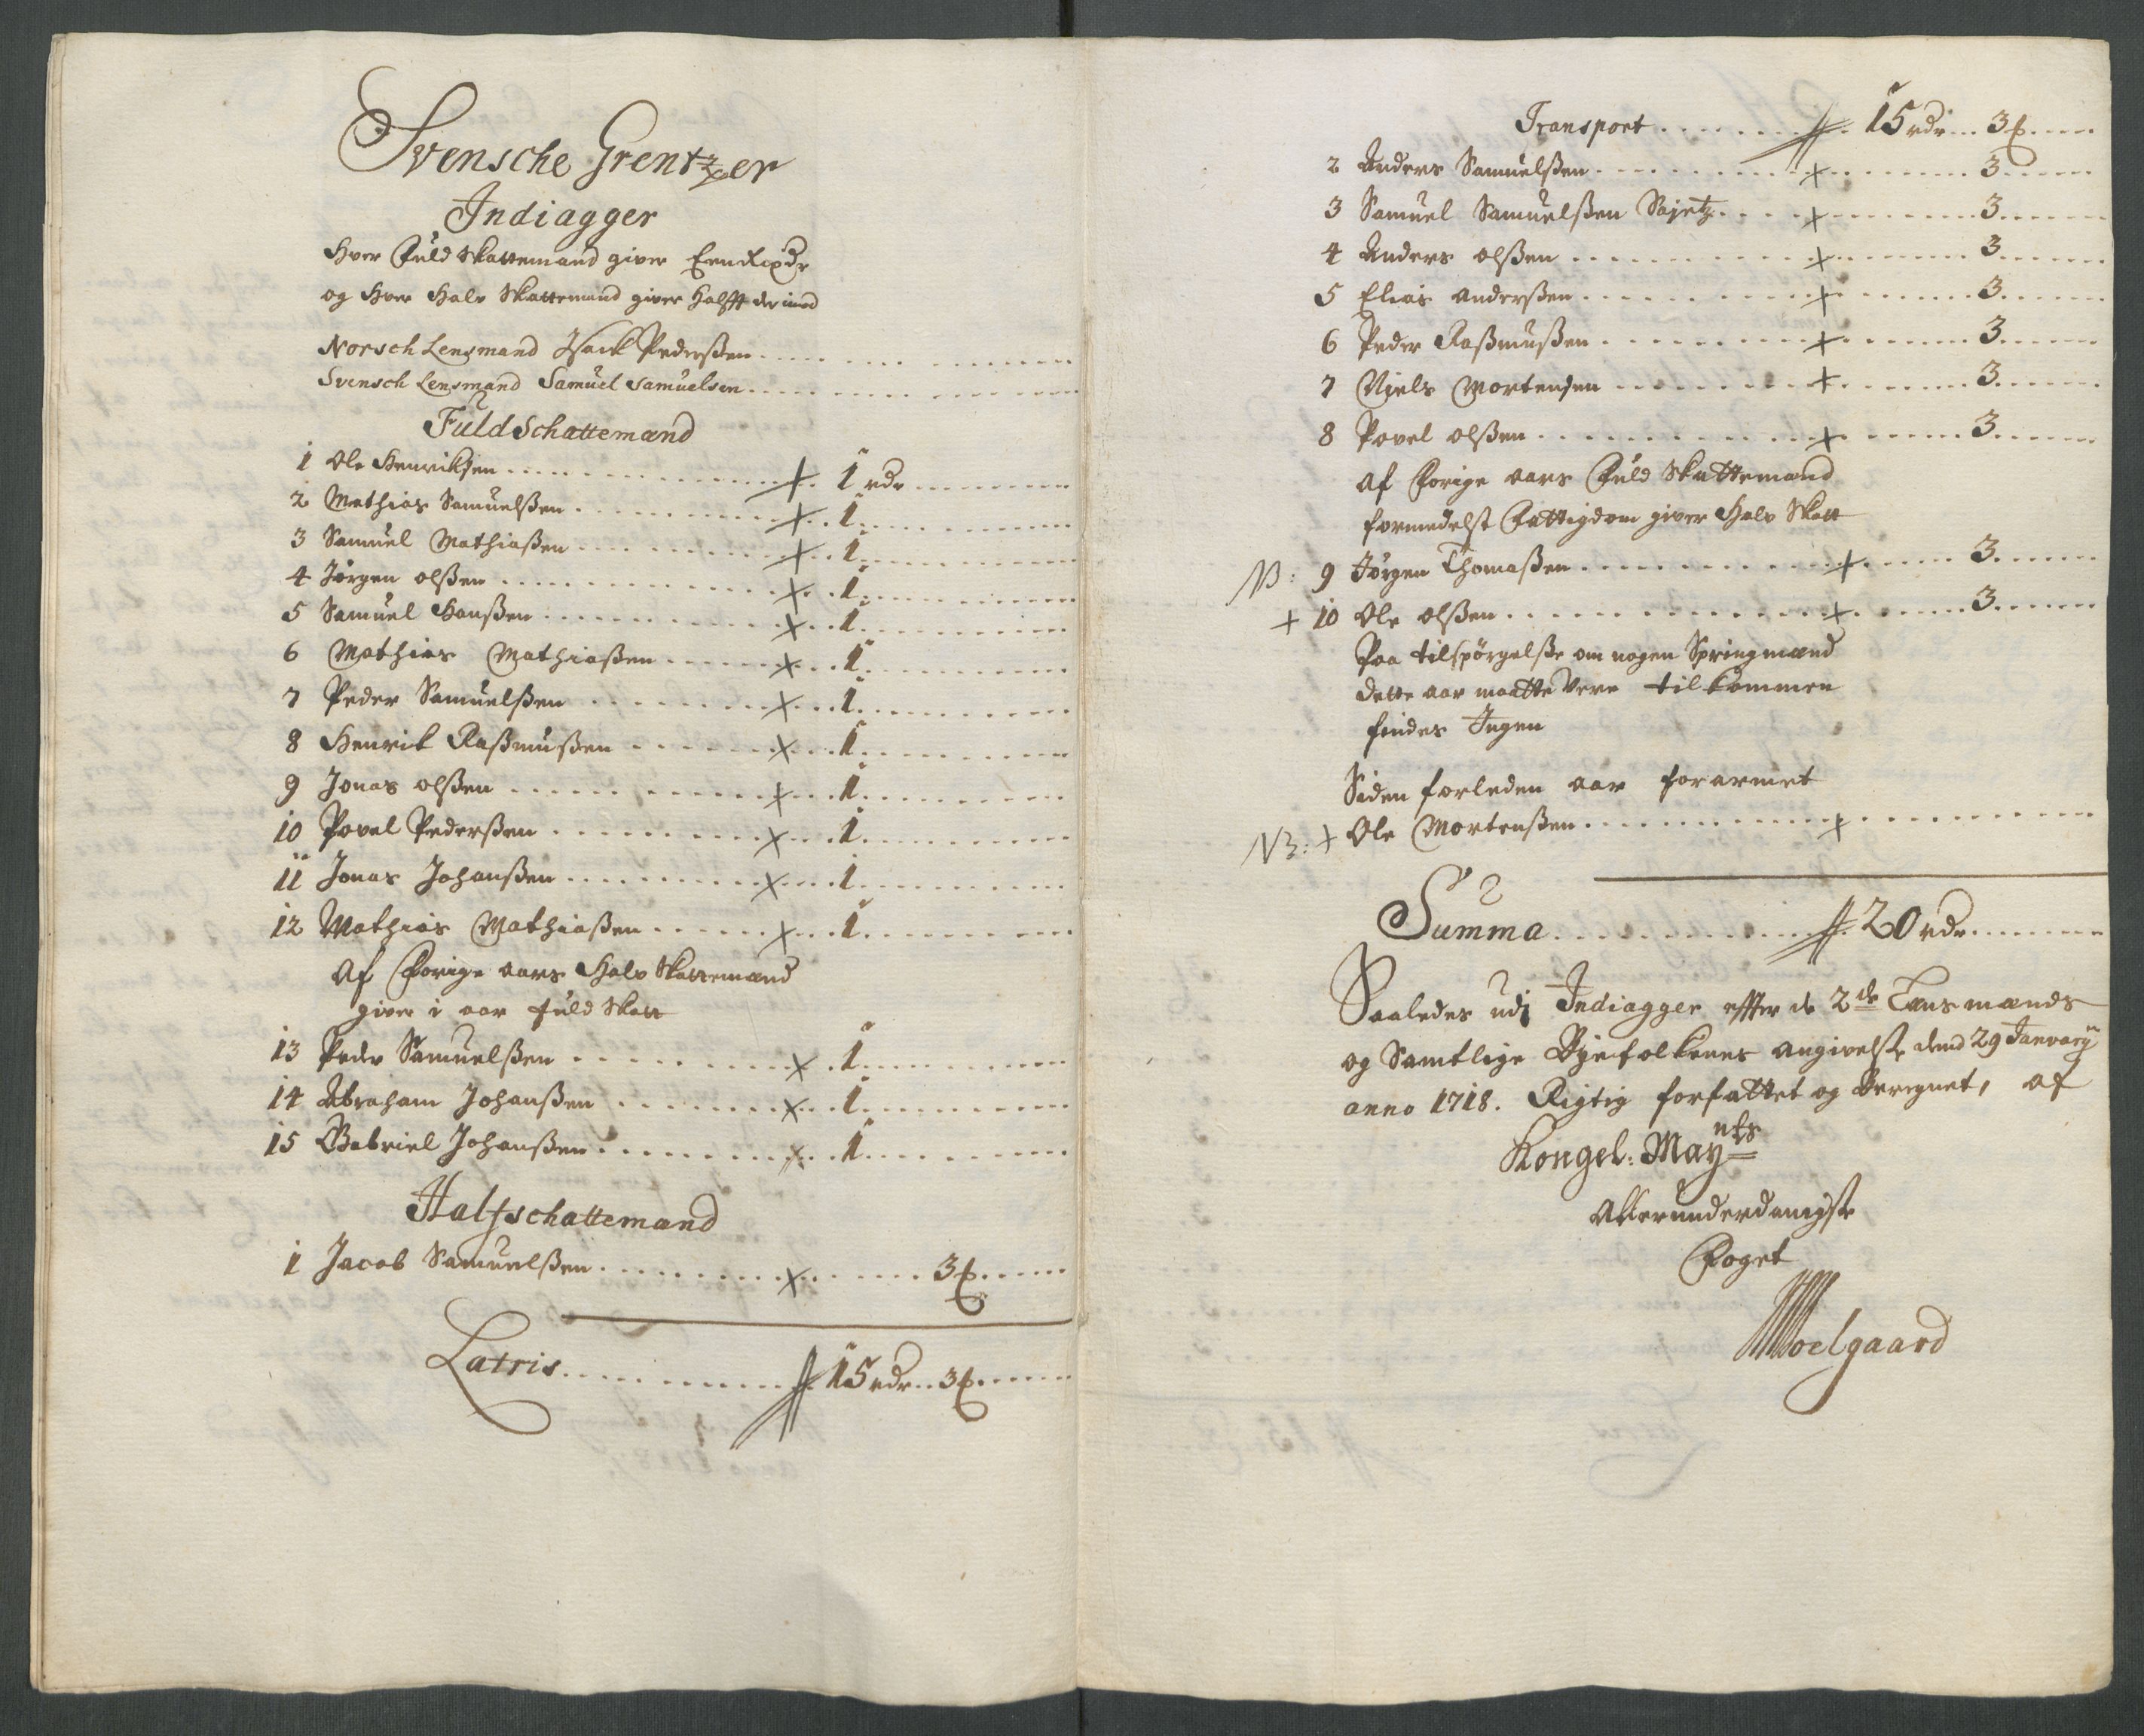 Svensche Grentzer
Indiagger
Hver Fuld Skattemand giver Een Rixdr
og Hver Halv Skattemand giver Halfft derimod
Norsch Lensmand Isack Pederßen
Svensch Lensmand Samuel Samuelsen
Fuldschattemænd
1 Ole Henriksen 1 rdr
2 Mathias Samuelßen 1
3 Samuel Mathiaßen 1
4 Jörgen olßen 1
5 Samuel Hanßen 1
6 Mathias Mathiaßen 1
7 Peder Samuelßen 1
8 Henrik Raßmußen 1
9 Jonas olßen 1
10 Povel Pederßen 1
11 Jonas Johanßen 1
12 Mathias Mathiaßen 1
Af Forige aars Halv Skattemænd
giver i aar fuld Skatt
13 Peder Samuelßen 1
14 Abraham Johanßen 1
15 Gabriel Johanßen 1
Halfschattemænd
1 Jacob Samuelßen 3 ß
Latris 15 rdr 3 ß
Transport 15 rdr 3 ß
2 Anders Samuelßen 3
3 Samuel Samuelßen 3
4 Anders olßen 3
5 Elias Anderßen 3
6 Peder Raßmußen 3
7 Niels Mortensen 3
8 Povel olßen 3
Af Forige aars Fuld Skattemænd
formedelst Fattigdom giver Halv Skatt
NB: 9 Jörgen Thomaßen 3
+ 10 Ole olßen 3
Paa tilspörgelße om nogen Springmænd
dette aar maatte Vere tilkommen
findes Ingen
Siden forleden aar forarmet
NB: + Ole Mortenßen
Summa 20 rdr
Saaledes udj Indiagger effter de 2de Lensmænds
og Samtlige Byefolkenes angivelße dend 29 January
anno 1718. Rigtig forfattet og Beregnet, af
Kongel: Mayts
Allerunderdanigste
Foget
Woelgaard